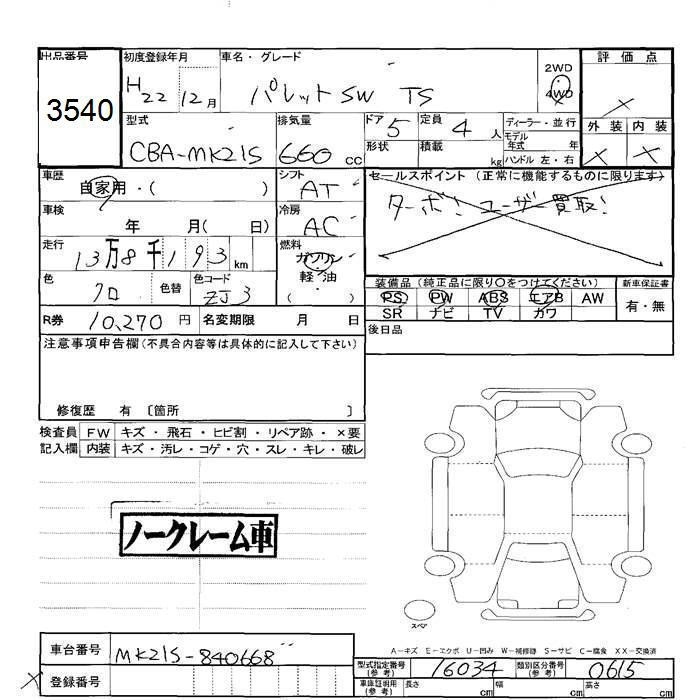 出品番号 初度登録年月 車名・グレード 2WD 4WD 評価点
3540 H22 12月 パレットSW TS ×
型式 排気量 ドア 5 定員 4人 ディーラー・並行 外装 内装
CBA-MK21S 660cc 形状 積載 kg モデル年式 年 ハンドル 左・右 × ×
車歴 自家用・( ) シフト AT セールスポイント (正常に機能するものに限ります)
車検 年 月( 日) 冷房 AC ターボ! ユーザー買取!
走行 13万8千193km 燃料 ガソリン 軽・油 ( )
色 クロ 色替 色コード ZJ3 装備品(純正品に限り○をつけてください) 新車保証書
PS PW ABS エアB AW 有・無
SR ナビ TV カワ
R券 10,270円 名変期限 月 日 後日品
注意事項申告欄(不具合内容等は具体的に記入して下さい)
修復歴 有 〔箇所 〕
検査員 FW キズ・飛石・ヒビ割・リペア跡・×要
記入欄 内装 キズ・汚レ・コゲ・穴・スレ・キレ・破レ
ノークレーム車
スペア
A-キズ E-エクボ U-凹み W-補修跡 S-サビ C-腐食 XX-交換済
車台番号 MK21S-840668
型式指定番号(参考) 16034 類別区分番号(参考) 0615
× 登録番号
車庫証明用(参考) 長さ cm 幅 cm 高さ cm